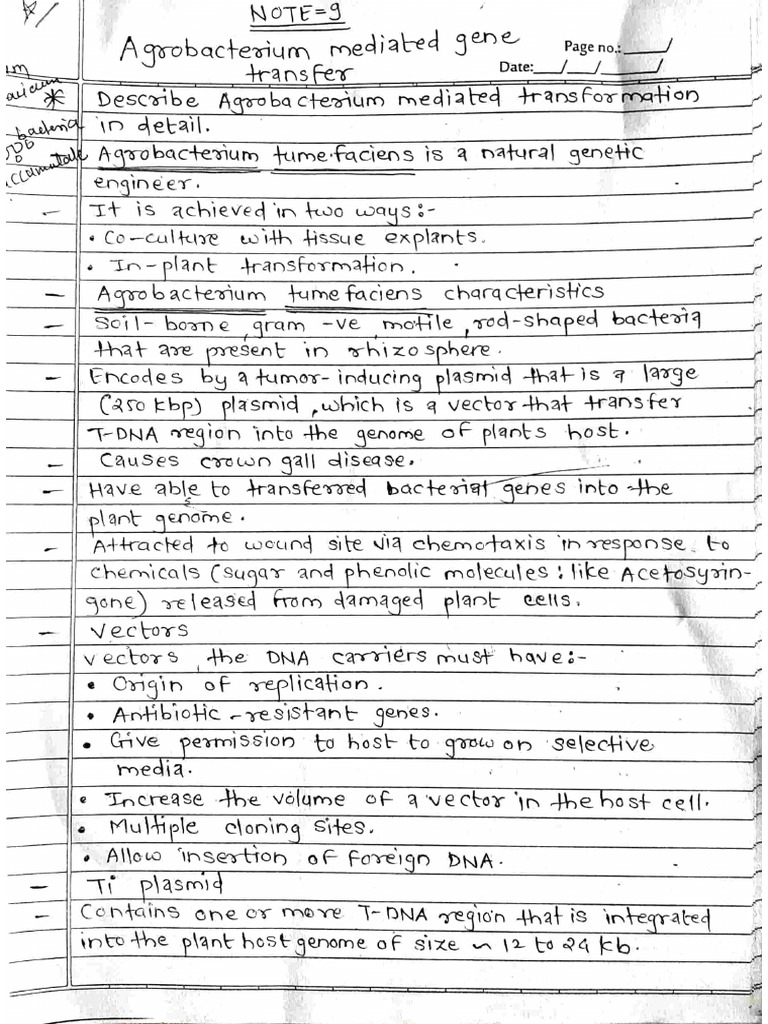 NOTE=9
Agrobacterium mediated gene
transfer
Page no.: ___/
Date: __/__/____/
* Describe Agrobacterium mediated transformation
in detail.
bacteria
Agrobacterium tume.faciens is a natural genetic
engineer.
- It is achieved in two ways:-
• Co-culture with tissue explants.
• In-plant transformation.
- Agrobacterium tumefaciens characteristics
- Soil-borne, gram -ve, motile, rod-shaped bacteria
that are present in rhizosphere.
- Encodes by a tumor-inducing plasmid that is a large
(250 kbp) plasmid, which is a vector that transfer
T-DNA region into the genome of plants host.
- Causes crown gall disease.
- Have able to transferred bacterial genes into the
plant genome.
- Attracted to wound site via chemotaxis in response to
chemicals (sugar and phenolic molecules: like Acetosyrin-
gone) released from damaged plant cells.
- Vectors
vectors, the DNA carriers must have:-
• Origin of replication.
• Antibiotic-resistant genes.
• Give permission to host to grow on selective
media.
• Increase the volume of a vector in the host cell.
• Multiple cloning sites.
• Allow insertion of foreign DNA.
- Ti plasmid
- Contains one or more T-DNA region that is integrated
into the plant host genome of size ~ 12 to 24 kb.